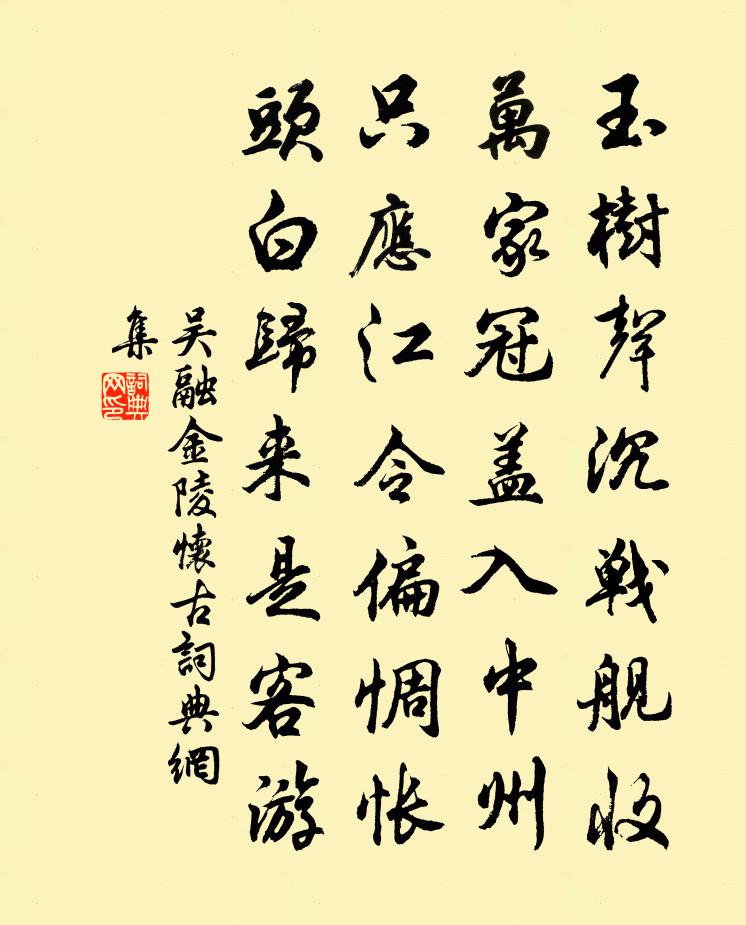 玉樹聲沉戦舰收
萬家冠盖入中州
只應江令偏惆怅
頭白歸来是客游
吴融金陵懷古詞典網
集
詞典网印